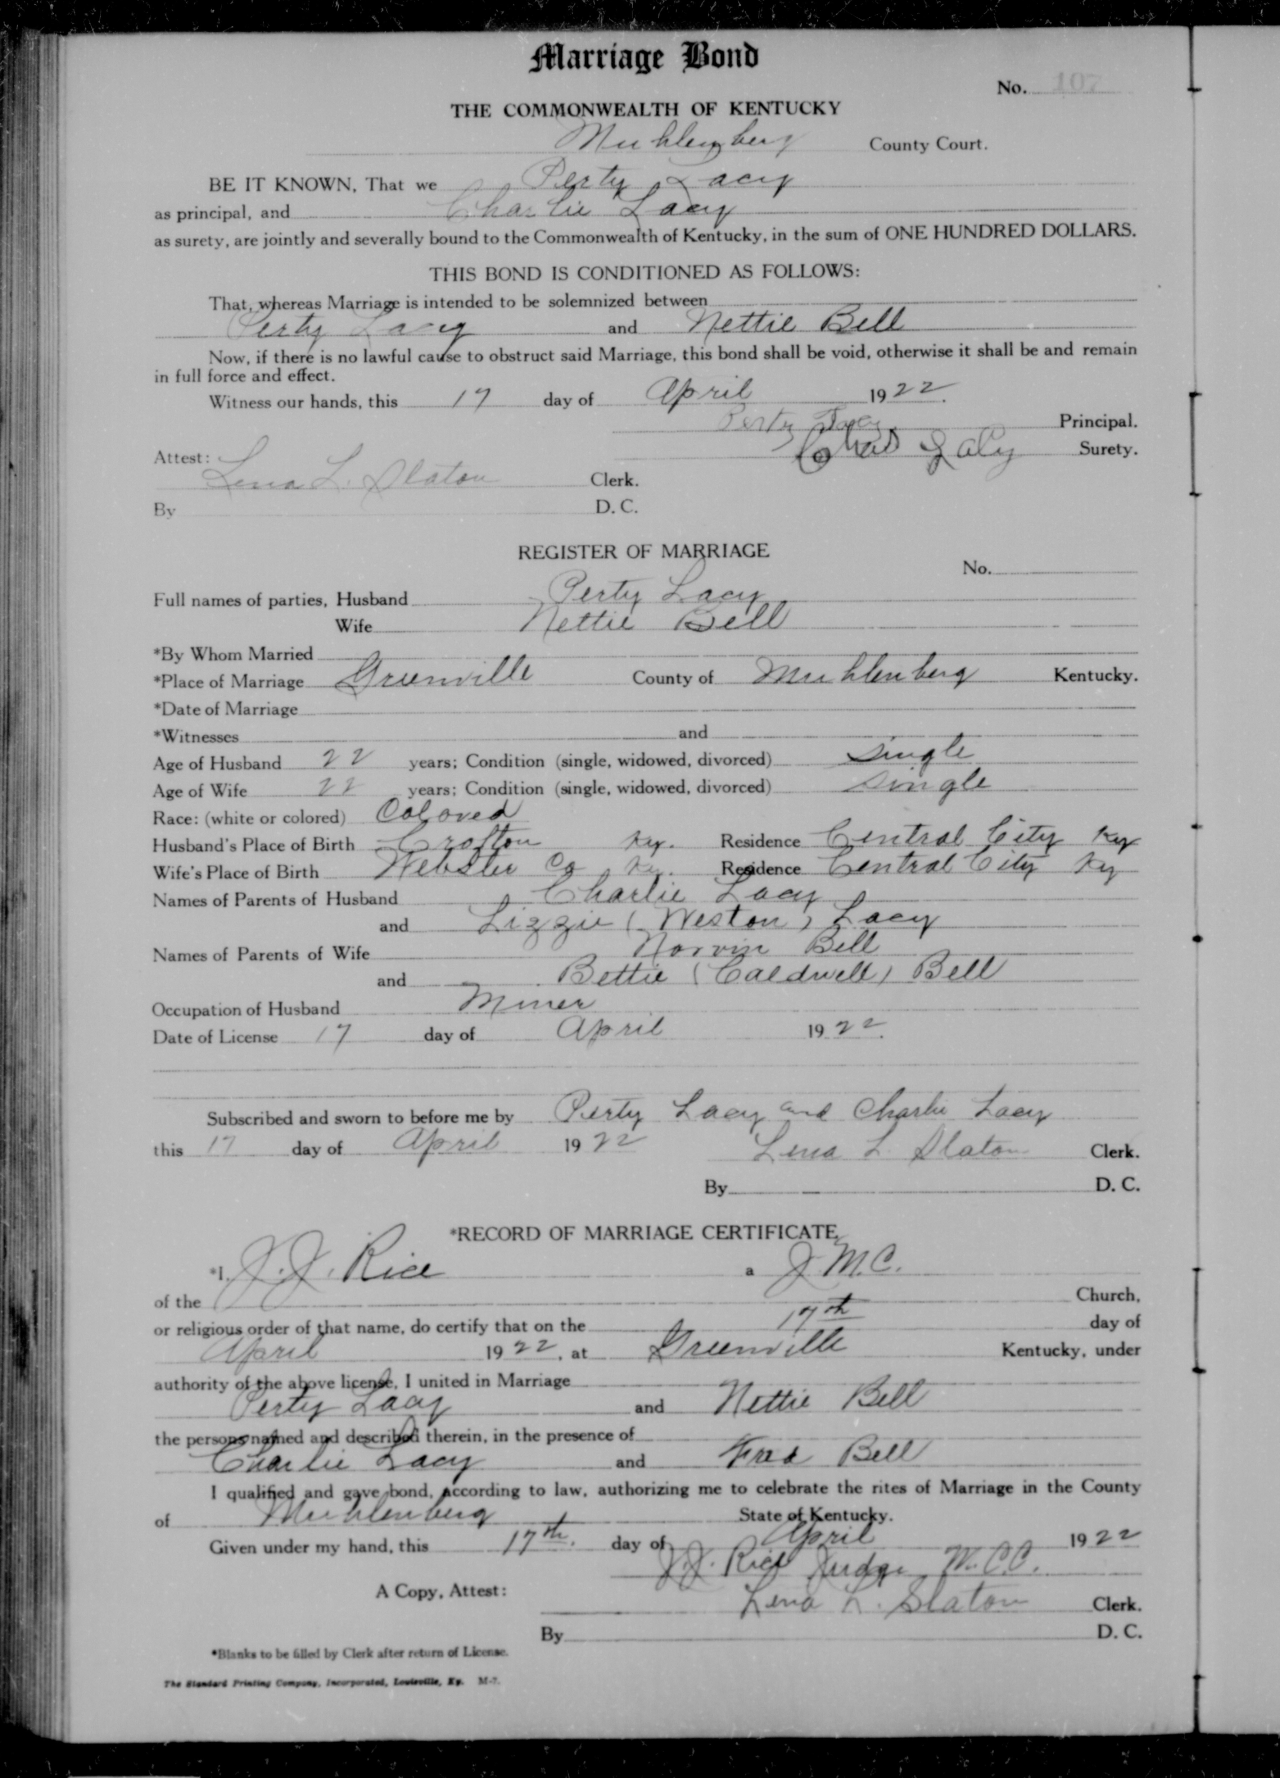 Marriage Bond
No. 107
THE COMMONWEALTH OF KENTUCKY
Muhlenberg County Court.
BE IT KNOWN, That we Perty Lacy
as principal, and Charlie Lacy
as surety, are jointly and severally bound to the Commonwealth of Kentucky, in the sum of ONE HUNDRED DOLLARS.
THIS BOND IS CONDITIONED AS FOLLOWS:
That, whereas Marriage is intended to be solemnized between
Perty Lacy and Nettie Bell
Now, if there is no lawful cause to obstruct said Marriage, this bond shall be void, otherwise it shall be and remain
in full force and effect.
Witness our hands, this 17 day of April 1922.
Perty Lacy Principal.
Attest: Chas Lacy Surety.
Lena L. Slaton Clerk.
By D. C.
REGISTER OF MARRIAGE
No.
Full names of parties, Husband Perty Lacy
Wife Nettie Bell
*By Whom Married
*Place of Marriage Greenville County of Muhlenberg Kentucky.
*Date of Marriage
*Witnesses and
Age of Husband 22 years; Condition (single, widowed, divorced) Single
Age of Wife 22 years; Condition (single, widowed, divorced) Single
Race: (white or colored) Colored
Husband's Place of Birth Crofton Ky. Residence Central City Ky
Wife's Place of Birth Webster Co Ky. Residence Central City Ky
Names of Parents of Husband Charlie Lacy
and Lizzie (Weston) Lacy
Names of Parents of Wife Norvin Bell
and Bettie (Caldwell) Bell
Occupation of Husband Miner
Date of License 17 day of April 1922.
Subscribed and sworn to before me by Perty Lacy and Charlie Lacy
this 17 day of April 1922
Lena L. Slaton Clerk.
By D. C.
*RECORD OF MARRIAGE CERTIFICATE
*I, J. J. Rice a J M.C.
of the Church,
or religious order of that name, do certify that on the 17th day of
April 1922, at Greenville Kentucky, under
authority of the above license, I united in Marriage
Perty Lacy and Nettie Bell
the persons named and described therein, in the presence of
Charlie Lacy and Fred Bell
I qualified and gave bond, according to law, authorizing me to celebrate the rites of Marriage in the County
of Muhlenberg State of Kentucky.
Given under my hand, this 17th. day of April 1922
J.J. Rice Judge M.C.C.
A Copy, Attest: Lena L. Slaton Clerk.
By D. C.
*Blanks to be filled by Clerk after return of License.
The Standard Printing Company, Incorporated, Louisville, Ky. M-7.